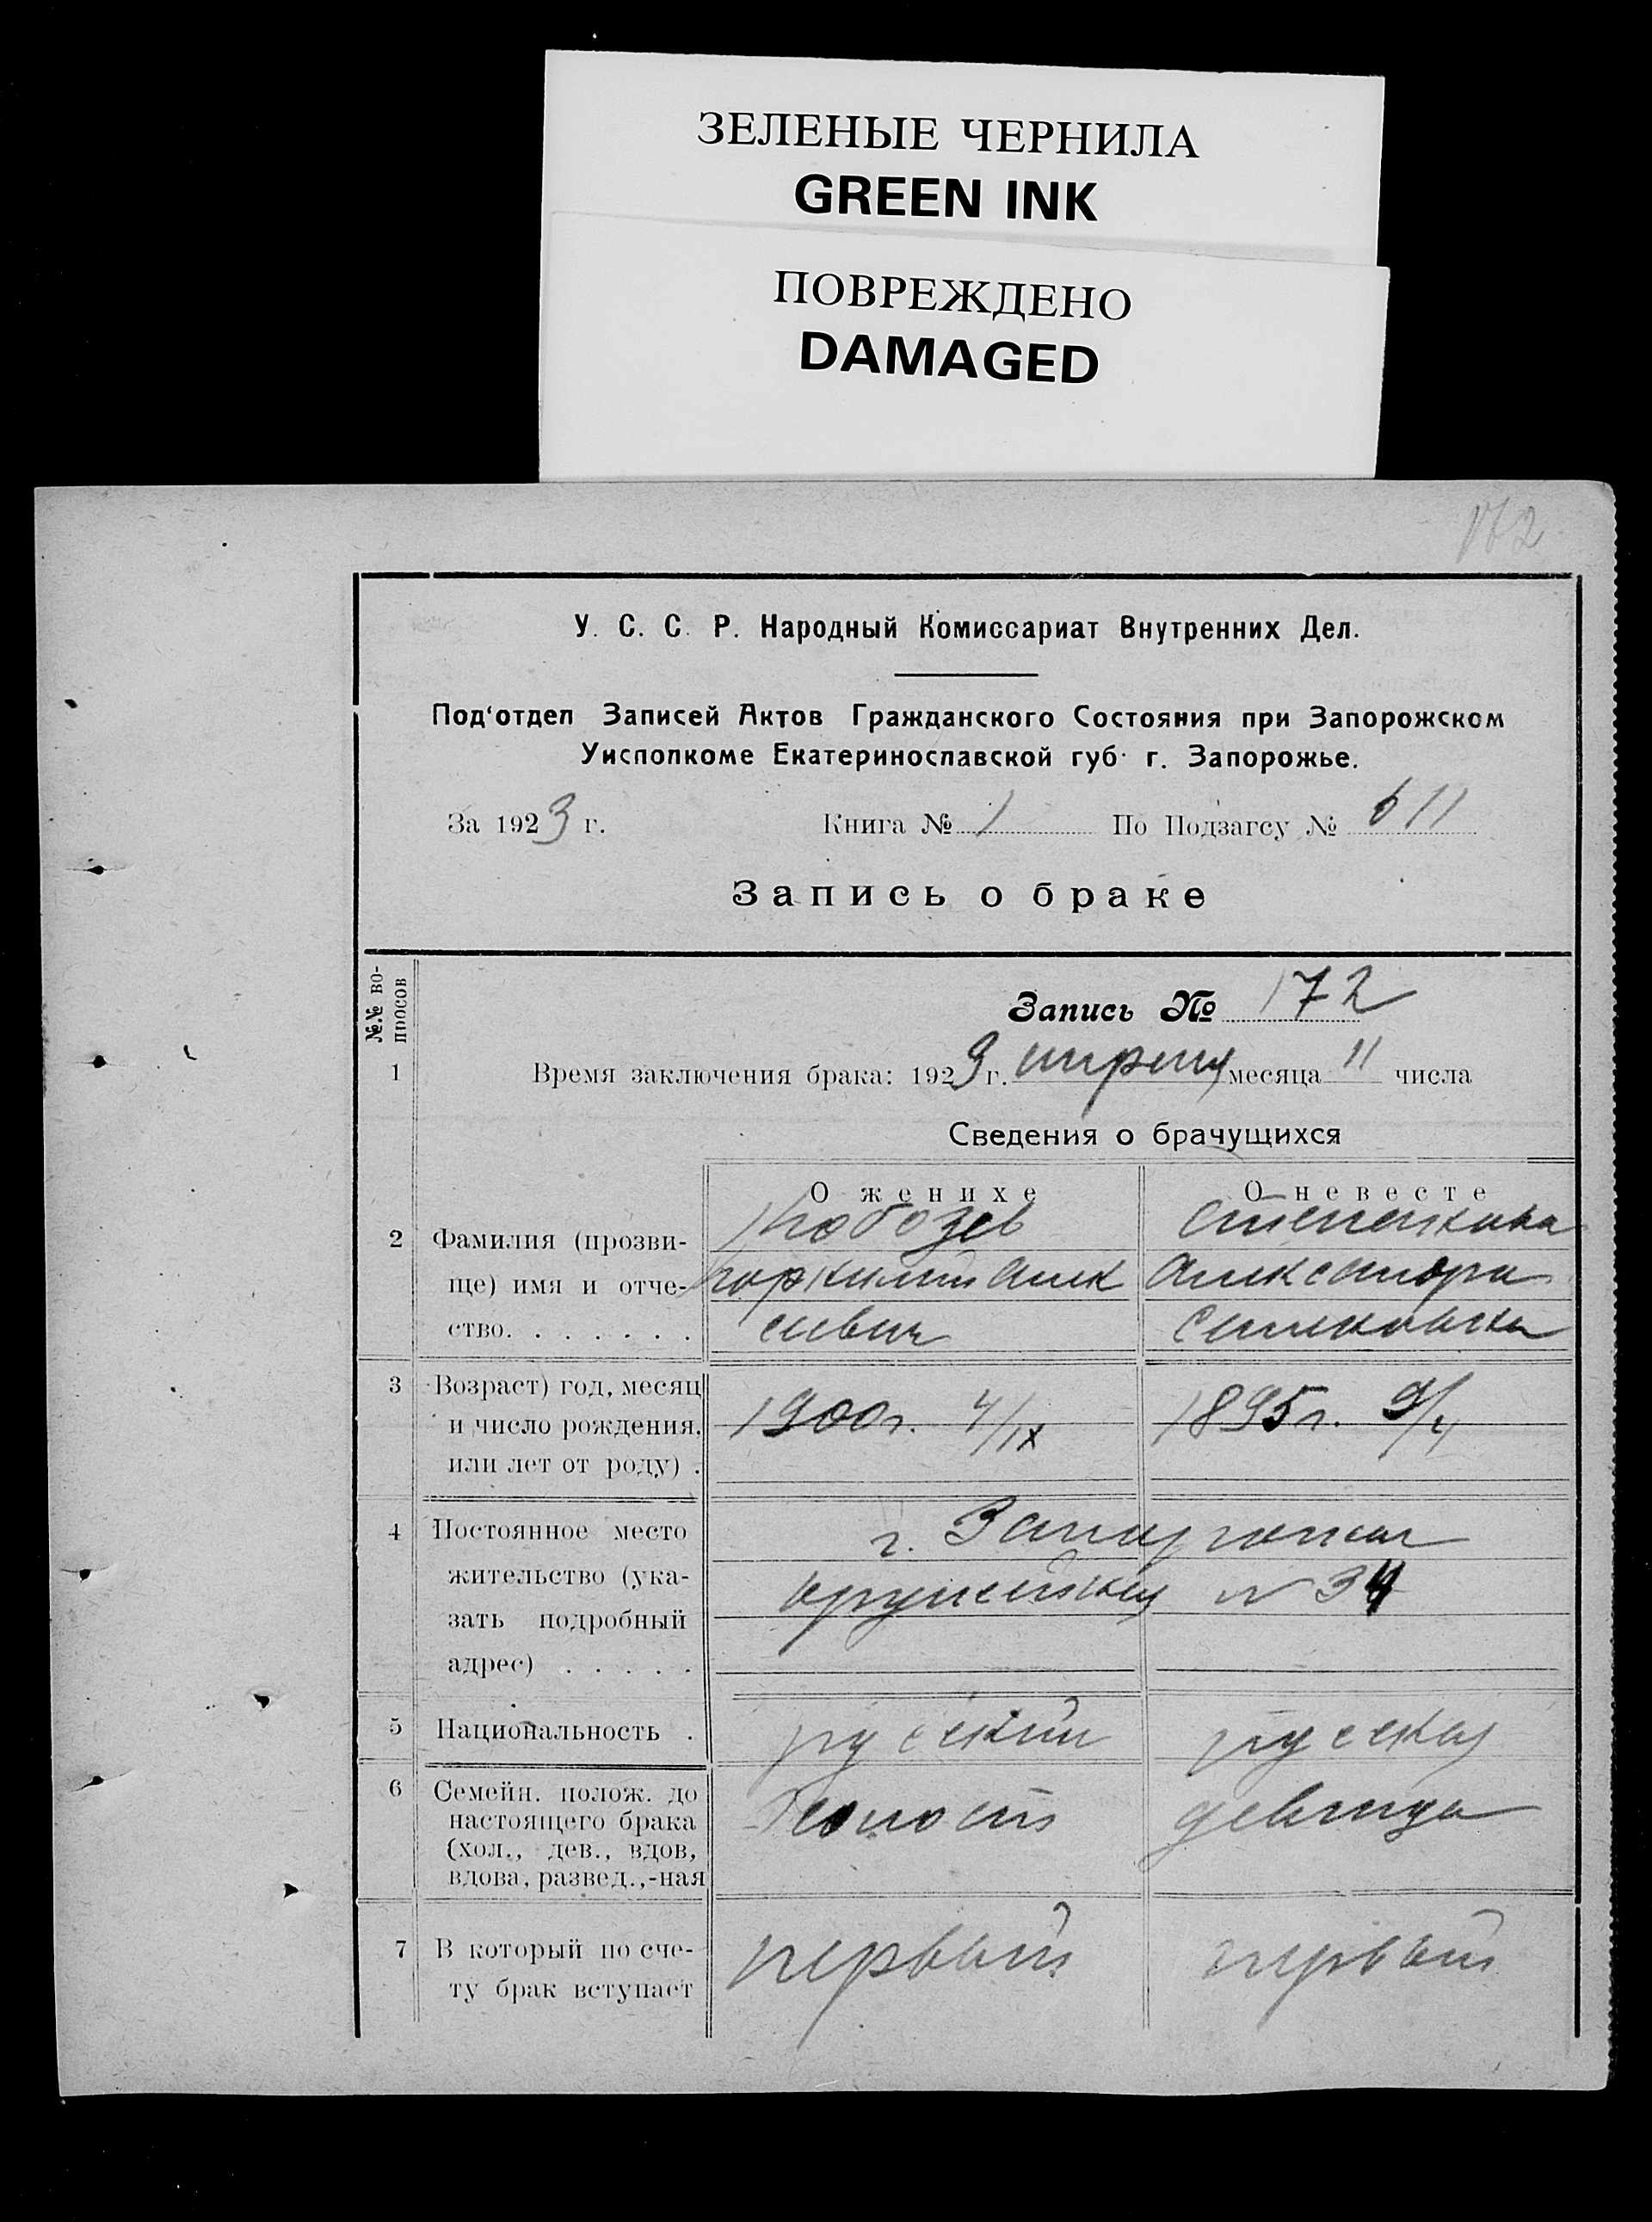 ЗЕЛЕНЫЕ ЧЕРНИЛА
GREEN INK
ПОВРЕЖДЕНО
DAMAGED
172
У. С. С. Р. Народный Комиссариат Внутренних Дел.
Под'отдел Записей Актов Гражданского Состояния при Запорожском
Уисполкоме Екатеринославской губ. г. Запорожье.
За 1923 г. Книга № 1 По Подзагсу № 611
Запись о браке
№.№ вопросов
Запись № 172
1 Время заключения брака: 1923 г. апреля месяца 11 числа
Сведения о брачущихся
О женихе О невесте
2 Фамилия (прозви- Кобозев
ще) имя и отче- Алек Александра
ство. . . . . . . сеевич Семеновна
3 Возраст) год, месяц
и число рождения, 1900г. 4/IX 1895г.
или лет от роду) .
4 Постоянное место г. Запорожье
жительство (ука- № 34
зать подробный
адрес) . . . . .
5 Национальность . русский русская
6 Семейн. полож. до
настоящего брака холост девица
(хол., дев., вдов,
вдова, развед.,-ная
7 В который по сче- первый первый
ту брак вступает